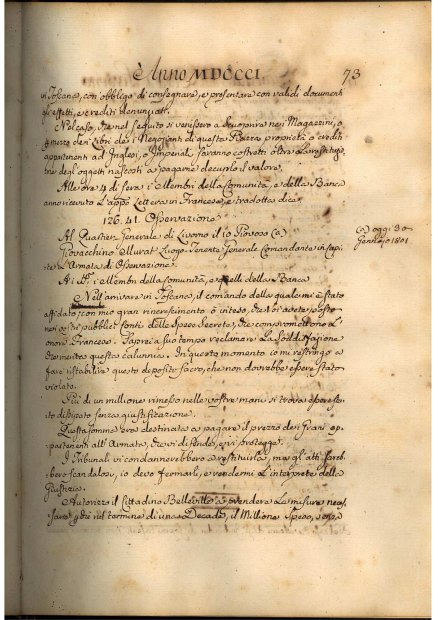 Anno MDCCCI
73
in Toscana, con obbligo di consegnare, e presentare con validi documenti
gli effetti, e crediti denunziati.
Nel caso, che nel seguito si venissero a scuoprire nei Magazzini, o
per mezzo dei Libri dei Negozianti di questa Piazza proprietà o crediti
appartenenti ad Inglesi, o Imperiali saranno costretti oltre la restituzio-
ne degl'oggetti nascosti a pagarne decuplo il valore.
Alle ore 4 di sera i Membri della Comunità, e della Banca
anno ricevuto Lappo Lettera in Francese, e tradotta dice,
126. 41. Osservazione
Al Quartier Generale di Livorno il 10 Piovoso (a)
(a) oggi 30
Gennajo 1801
Giovacchino Murat Luogo Tenente Generale Comandante in Capi-
te l'Armata di Osservazione
Ai SS.i Membri della Comunità, e quelli della Banca
Nell'arrivare in Toscana, il comando della quale mi è stato
affidato, con mio gran rincrescimento ò inteso, che Voi avete posto
nei vostri pubblici Conti delle Spese Secrete, che compromettono l'o-
nore Francese. Saprei a suo tempo reclamare la soddisfazione
che merita questa calunnia. In questo momento io mi restringo a
fare ristabilire questo deposito sacro, che non dovrebbe essere stato
violato.
Più di un millione rimesso nelle vostre mani si trova essere sta-
to dissipato senza giustificazione.
Questa somma era destinata a pagare il prezzo dei Grani ap-
partenenti all'Armata, che vi difende, e vi protegge.
I Tribunali vi condannerebbero a restituirla, ma gli atti sareb-
bero scandalosi, io devo fermarli, e rendermi l'interprete della
Giustizia.
Autorizzo il Cittadino Belleville a prendere le misure neces-
sarie perchè nel termine di una Decade, il Millione speso, senza